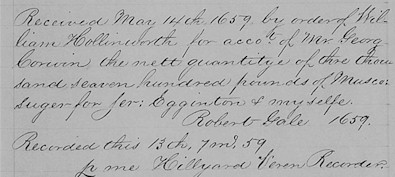 Received May 14th 1659 by order of Wil-
liam Hollinworth for accot. of Mr. Georg
Corwin the nett quantitye of thre thou
sand seaven hundred pounds of Musco:
suger for Jer: Egginton & myselfe.
Robert Gale 1659.
Recorded this 13th, 7mo, 59
p me Hillyard Veren Recorder.